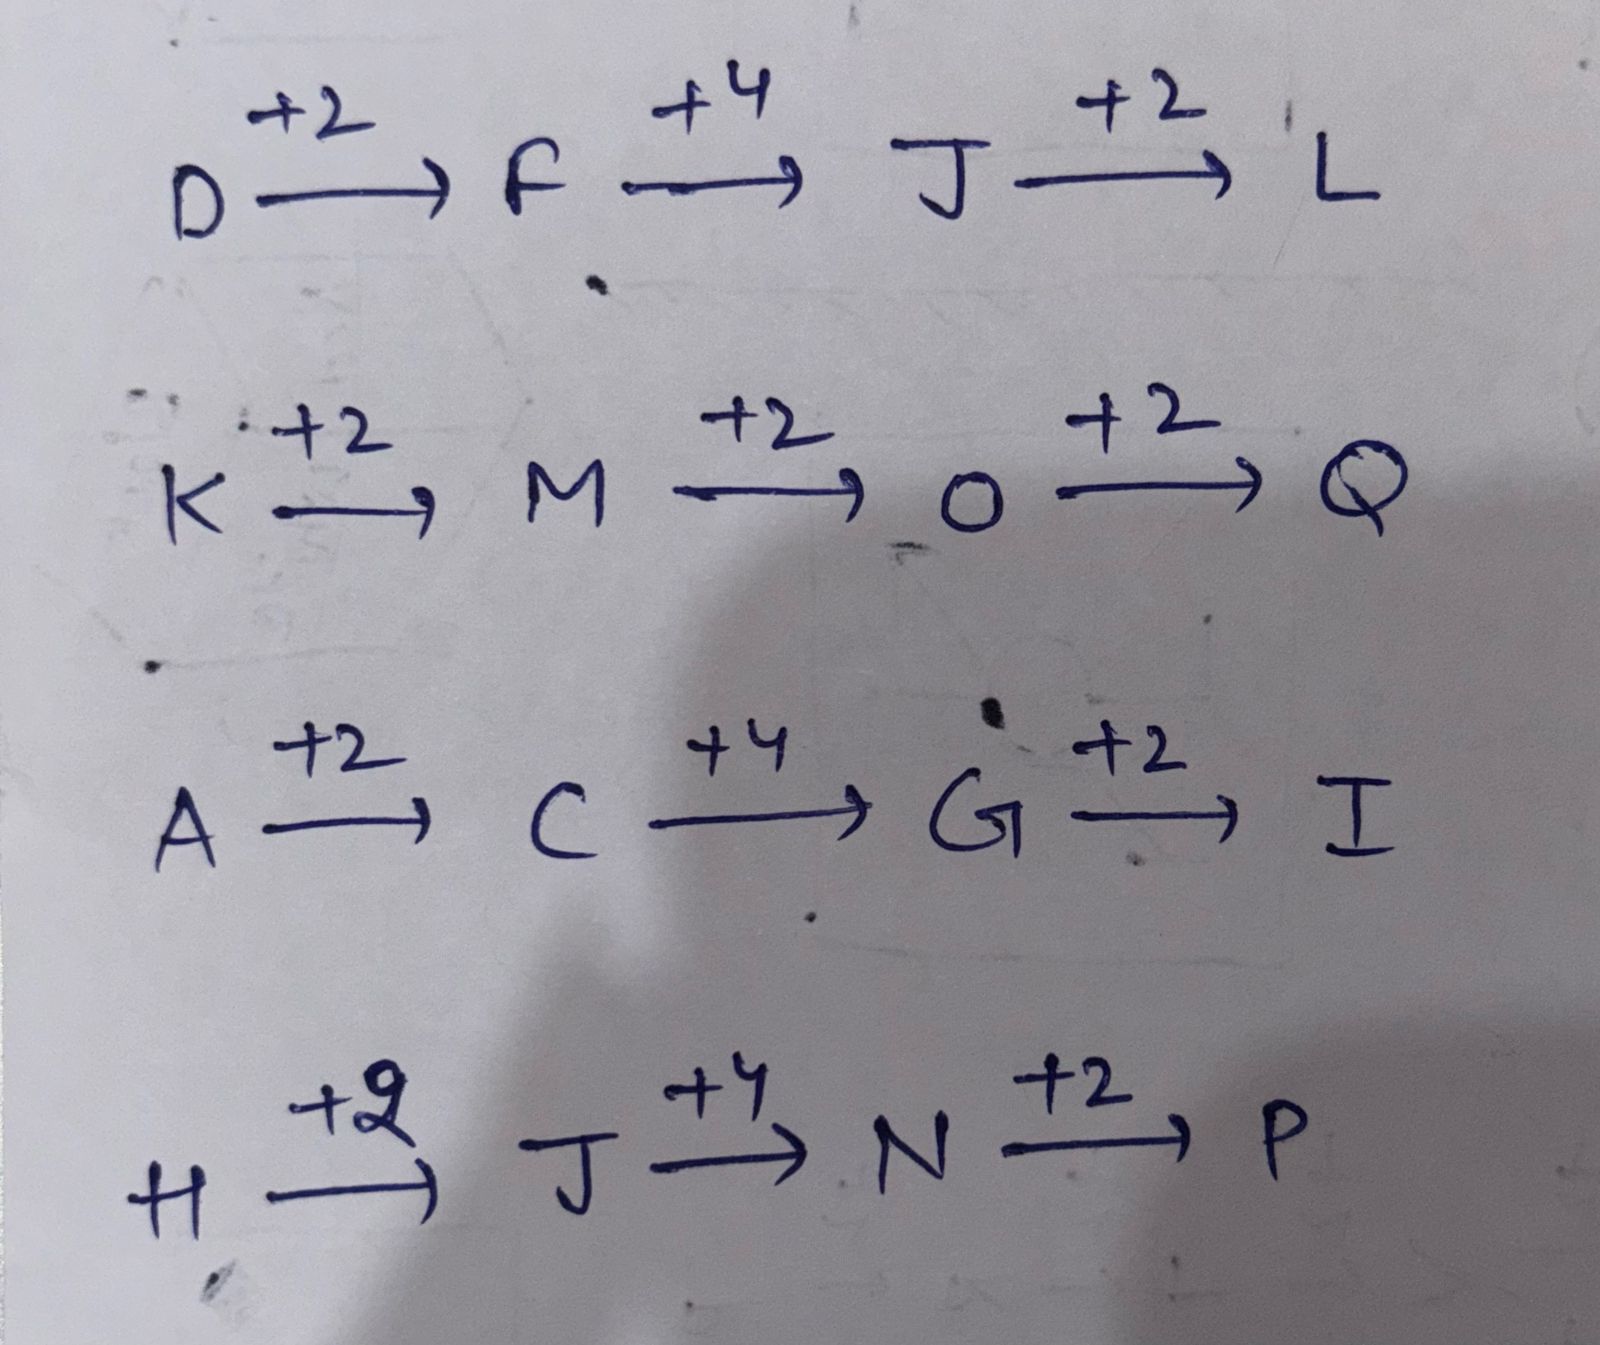 D +2 → F +4 → J +2 → L
K +2 → M +2 → O +2 → Q
A +2 → C +4 → G +2 → I
H +2 → J +4 → N +2 → P